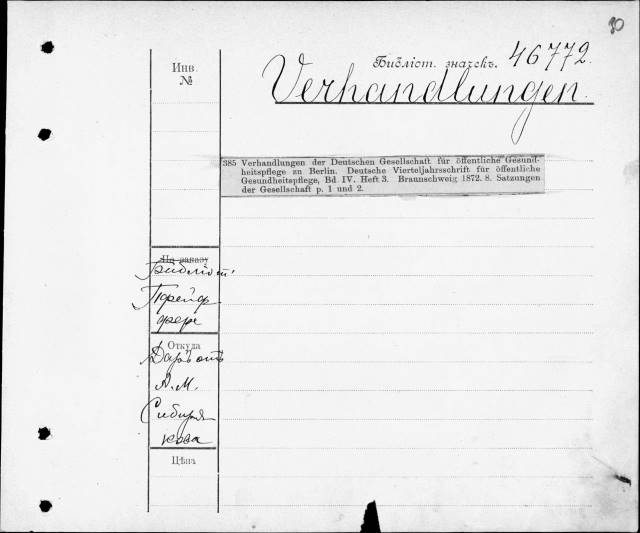 30
Инв.
№
Библіот. значекъ. 46772.
Verhandlungen.
385 Verhandlungen der Deutschen Gesellschaft für öffentliche Gesund-
heitspflege zu Berlin. Deutsche Vierteljahrsschrift für öffentliche
Gesundheitspflege, Bd. IV. Heft 3. Braunschweig 1872. 8. Satzungen
der Gesellschaft p. 1 und 2.
По заказу
Библіот.
Прейф
фера
Откуда
Даръ отъ
А. М.
Сибиря
кова
Цѣна